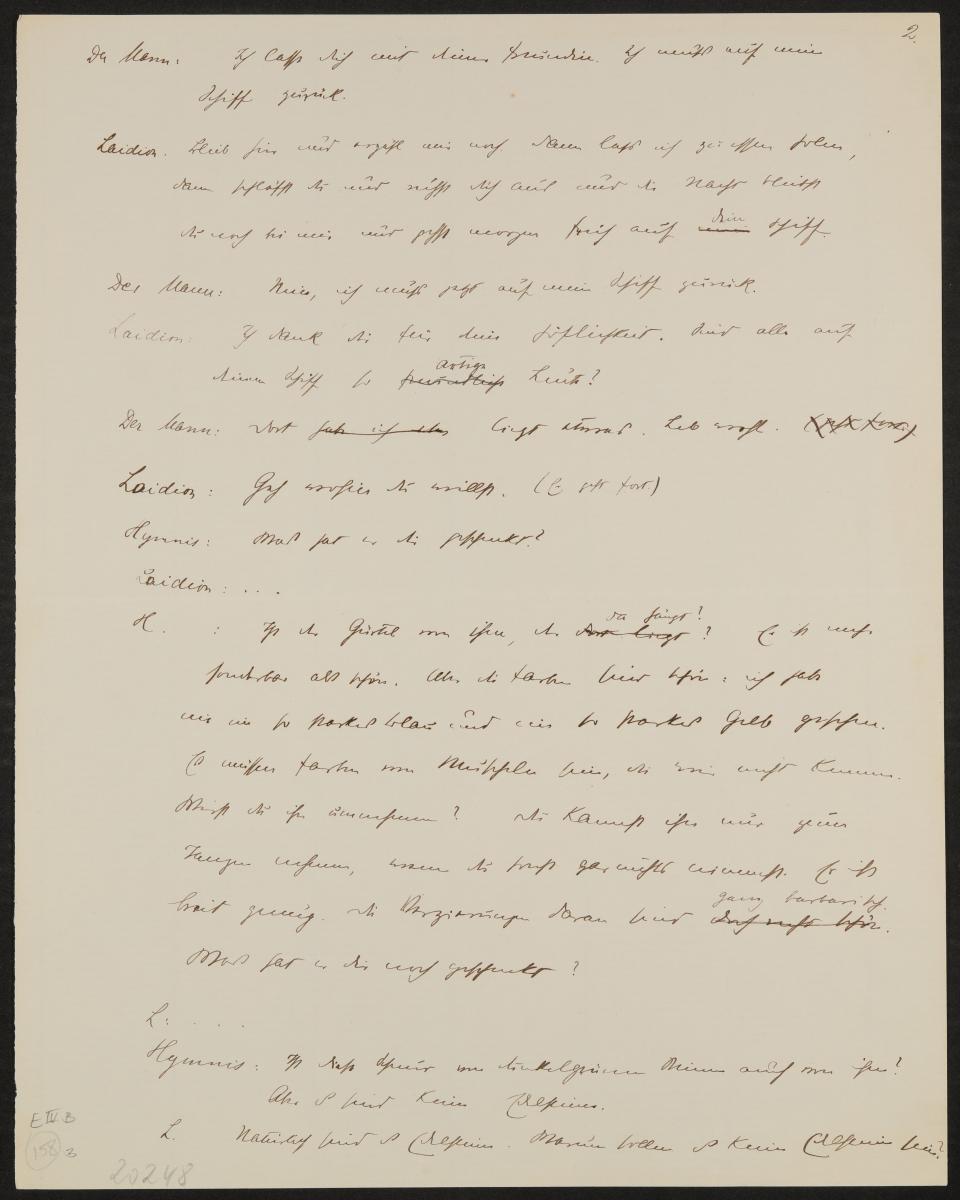 2.
Der Mann: Ich lasse dich mit deiner Freundin. Ich muß auf mein
Schiff zurück.
Laidion. Bleib hier und erzähl mir noch dann lass ich zu essen holen,
dann schläfst du und ruhst dich aus und die Nacht bleibst
du noch bei mir und gehst morgen früh auf mein dein Schiff.
Der Mann: Nein, ich muß jetzt auf mein Schiff zurück.
Laidion: Ich dank dir für deine Höflichkeit. Sind alle auf
deinem Schiff so freundliche artige Leute?
Der Mann: Dort habe ich liegt etwas. Leb wohl. (geht fort.)
Laidion: Geh wohin du willst. (Er geht fort.)
Hymnis: Was hat er dir geschenkt?
Laidion: . . .
H. : Ist der Gürtel von ihm, der dort liegt da hängt! ? Er ist mehr
sonderbar als schön. Aber die Farben sind schön: ich habe
nie ein so starkes Blau und ein so starkes Gelb gesehen.
Es müssen Farben von Muscheln sein, die wir nicht kennen.
Wirst du ihn umnehmen? Du kannst ihn nur zum
Tanzen nehmen, wenn du sonst gar nichts nimmst. Er ist
breit genug. Die Verzierungen daran sind doch nicht schön ganz barbarisch.
Was hat er dir noch geschenkt?
L: . . . .
Hymnis: Ist diese Schnur von dunkelgrünen Steinen auch von ihm?
Aber es sind keine Edelsteine.
L. Natürlich sind es Edelsteine. Warum sollen es keine Edelsteine sein?
E IV. B
158 3
20248